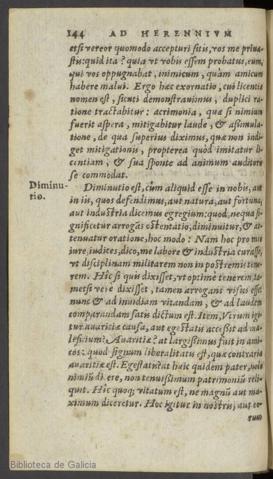 144 AD HERENNIVM
etsi vereor quomodo accepturi sitis, vos me priua-
stis: quid ita? quia vt vobis essem probatus, eum,
qui vos oppugnabat, inimicum, quàm amicum
habere malui. Ergo hæc exornatio, cui licentiæ
nomen est, sicuti demonstrauimus, duplici ra-
tione tractabitur: acrimonia, quæ si nimium
fuerit aspera, mitigabitur laude, & assimula-
tione, de qua superius diximus, quæ non indi-
get mitigationis, propterea quòd imitatur li-
centiam, & sua sponte ad animum auditoris
se commodat.
Diminu-
tio.
Diminutio est, cùm aliquid esse in nobis, aut
in iis, quos defendimus, aut natura, aut fortuna,
aut industria dicemus egregium: quod, ne qua si-
gnificetur arrogās ostentatio, diminuitur, & at-
tenuatur oratione, hoc modo: Nam hoc pro meo
iure, iudices, dico, me labore & industria curasse,
vt disciplinam militarem non in postremis tene-
rem. Hîc si quis dixisset, vt optimè tenerem, ta-
metsi verè dixisset, tamen arrogans visus esset
nunc & ad inuidiam vitandam, & ad laudem
comparandam satis dictum est. Item, Vtrum igi-
tur auaritiæ causa, aut egestatis accessit ad ma-
lesicium? Auaritiæ? at largissimus fuit in ami-
cos: quod signum liberalitatis est, quæ contraria
auaritiæ est. Egestatis? at huic quidem pater, nolo
nimiū di ere, non tenuissimum patrimoniū reli-
quit. Hîc quoq; vitatum est, ne magnū aut ma-
ximum diceretur. Hoc igitur in nostris, aut eo-
rum
Biblioteca de Galicia